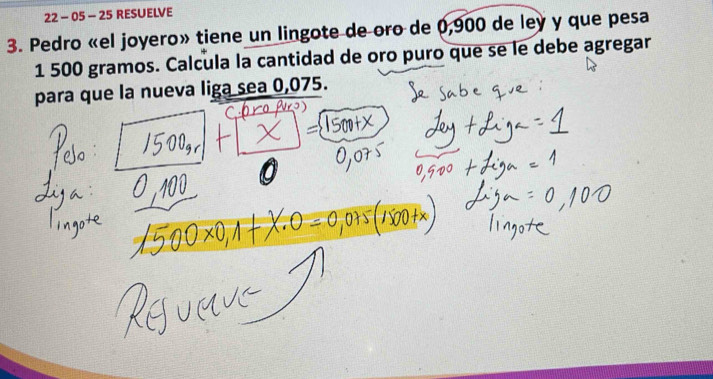 22 – 05 – 25 RESUELVE
3. Pedro «el joyero» tiene un lingote de oro de 0,900 de ley y que pesa
1 500 gramos. Calcula la cantidad de oro puro que se le debe agregar
para que la nueva liga sea 0,075.
Se sabe que:
(oro puro)
Peso: 1500gr + X = 1500+X
Ley + Liga = 1
Liga: 0,100 0 0,075
0,900 + Liga = 1
lingote
Liga = 0,100
lingote
1500x0,1+X.0=0,075(1500+x)
RESUELVE